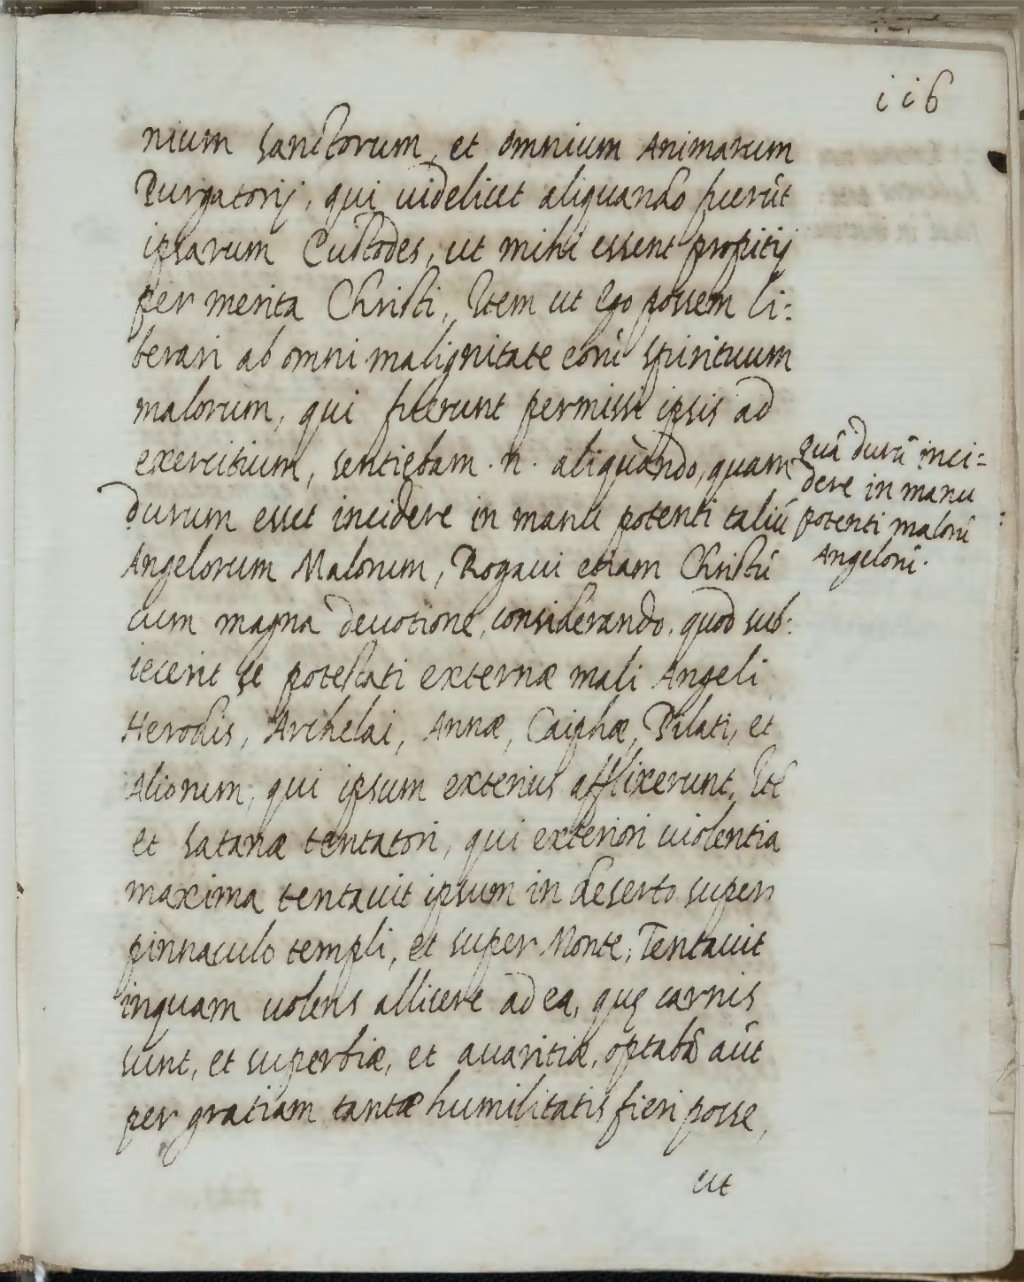 116
nium Sanctorum, et omnium Animarum
Purgatorij, qui uidelicet aliquando fuerũt
ipsarum Custodes, ut mihi essent propitij
per merita Christi, Item ut Ego possem li:
berari ab omni malignitate eorũ spirituum
malorum, qui fuerunt permissi ipsis ad
exercitium, sentiebam .n. aliquando, quam
durum esset incidere in manu potenti taliũ
Angelorum Malorum, Rogaui etiam Christũ
cum magna deuotione, considerando, quod sub:
iecerit se potestati externæ mali Angeli
Herodis, Archelai, Annæ, Caiphæ, Pilati, et
Aliorum, qui ipsum exterius afflixerunt, Itẽ
et Satanæ tentatori, qui exteriori uiolentia
maxima tentauit ipsum in deserto super
pinnaculo templi, et super Monte, Tentauit
inquam uolens allicere ad ea, quę carnis
sunt, et superbiæ, et auaritiæ, optabã aũt
per gratiam tantæ humilitatis fieri posse,
ut
quã durũ inci=
dere in manu
potenti malorũ
Angelorũ.